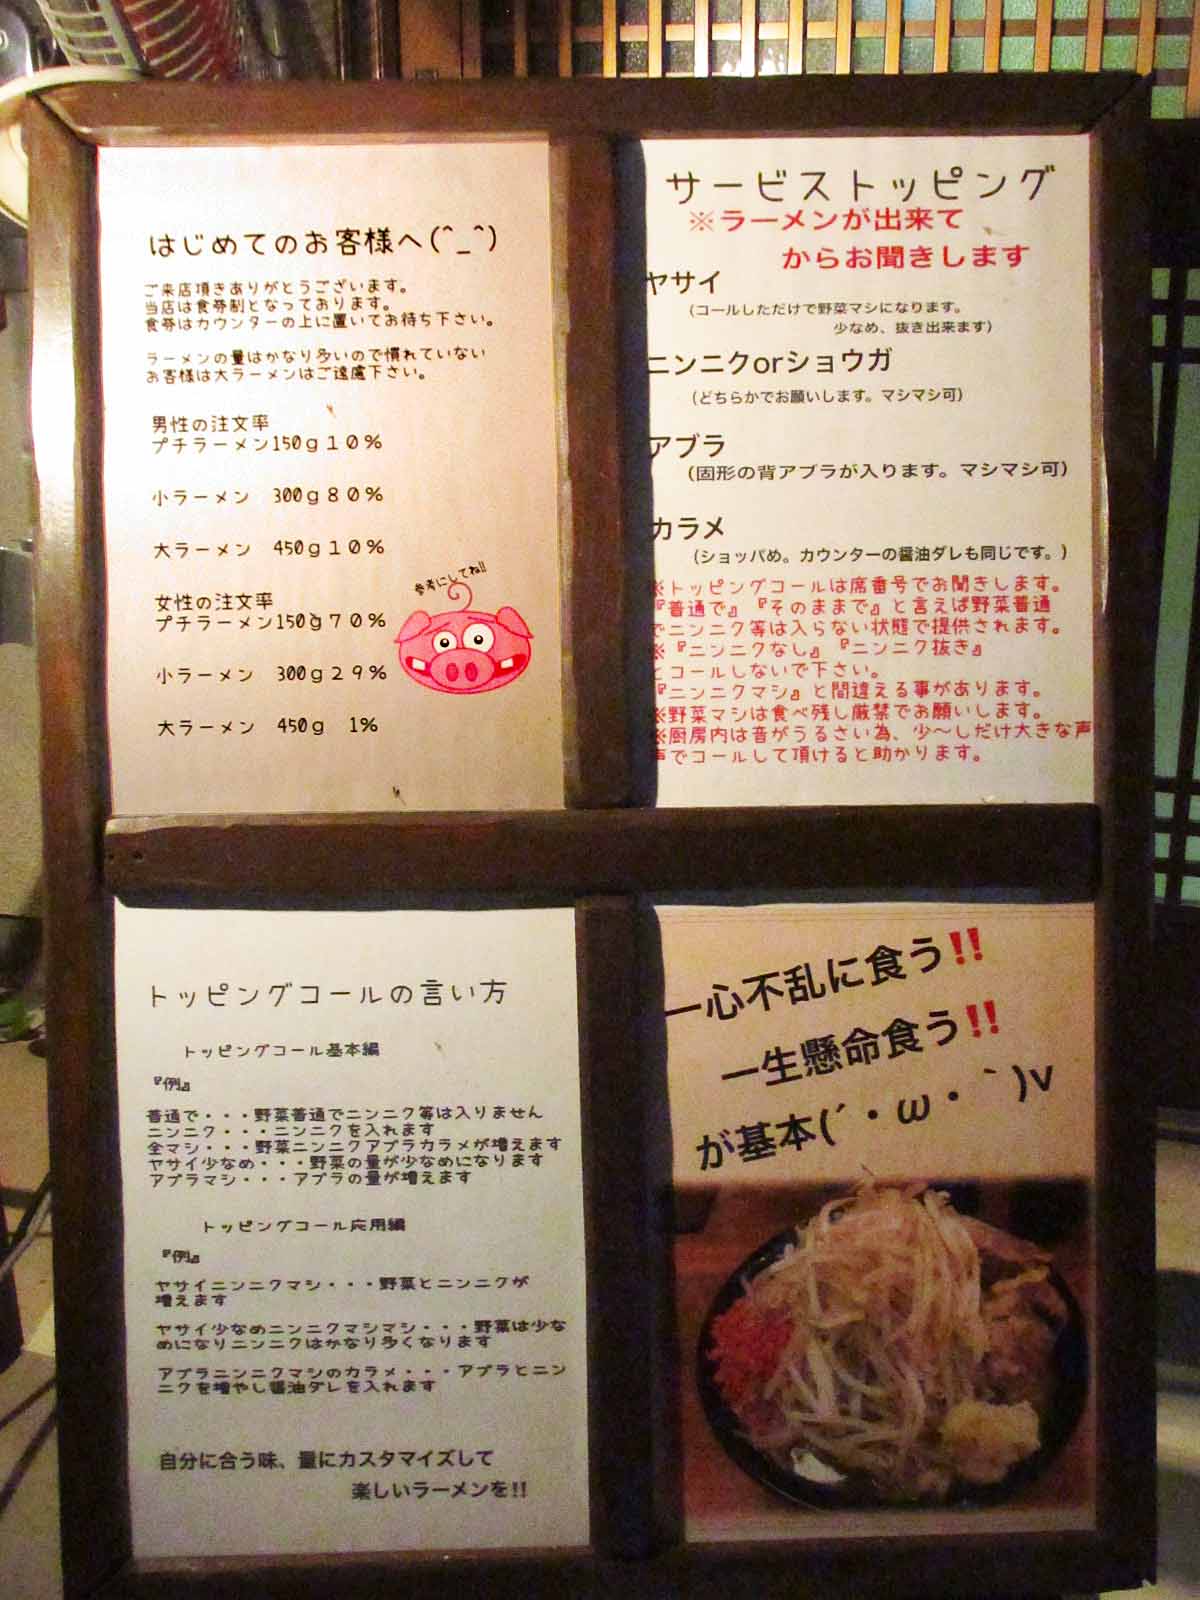 はじめてのお客様へ(^_^)
ご来店頂きありがとうございます。
当店は食券制となっております。
食券はカウンターの上に置いてお待ち下さい。
ラーメンの量はかなり多いので慣れていない
お客様は大ラーメンはご遠慮下さい。
男性の注文率
プチラーメン150g１０%
小ラーメン 300g８０%
大ラーメン 450g１０%
女性の注文率
プチラーメン150g７０%
小ラーメン 300g２９%
大ラーメン 450g 1%
参考にしてね!!
サービストッピング
※ラーメンが出来て
からお聞きします
ヤサイ
（コールしただけで野菜マシになります。
少なめ、抜き出来ます）
ニンニクorショウガ
（どちらかでお願いします。マシマシ可）
アブラ
（固形の背アブラが入ります。マシマシ可）
カラメ
（ショッパめ。カウンターの醤油ダレも同じです。）
※トッピングコールは席番号でお聞きします。
『普通で』『そのままで』と言えば野菜普通
でニンニク等は入らない状態で提供されます。
※『ニンニクなし』『ニンニク抜き』
とコールしないで下さい。
『ニンニクマシ』と間違える事があります。
※野菜マシは食べ残し厳禁でお願いします。
※厨房内は音がうるさい為、少〜しだけ大きな声
声でコールして頂けると助かります。
トッピングコールの言い方
トッピングコール基本編
『例』
普通で・・・野菜普通でニンニク等は入りません
ニンニク・・・ニンニクを入れます
全マシ・・・野菜ニンニクアブラカラメが増えます
ヤサイ少なめ・・・野菜の量が少なめになります
アブラマシ・・・アブラの量が増えます
トッピングコール応用編
『例』
ヤサイニンニクマシ・・・野菜とニンニクが
増えます
ヤサイ少なめニンニクマシマシ・・・野菜は少な
めになりニンニクはかなり多くなります
アブラニンニクマシのカラメ・・・アブラとニン
ニクを増やし醤油ダレを入れます
自分に合う味、量にカスタマイズして
楽しいラーメンを!!
一心不乱に食う!!
一生懸命食う!!
が基本(´・ω・｀)v